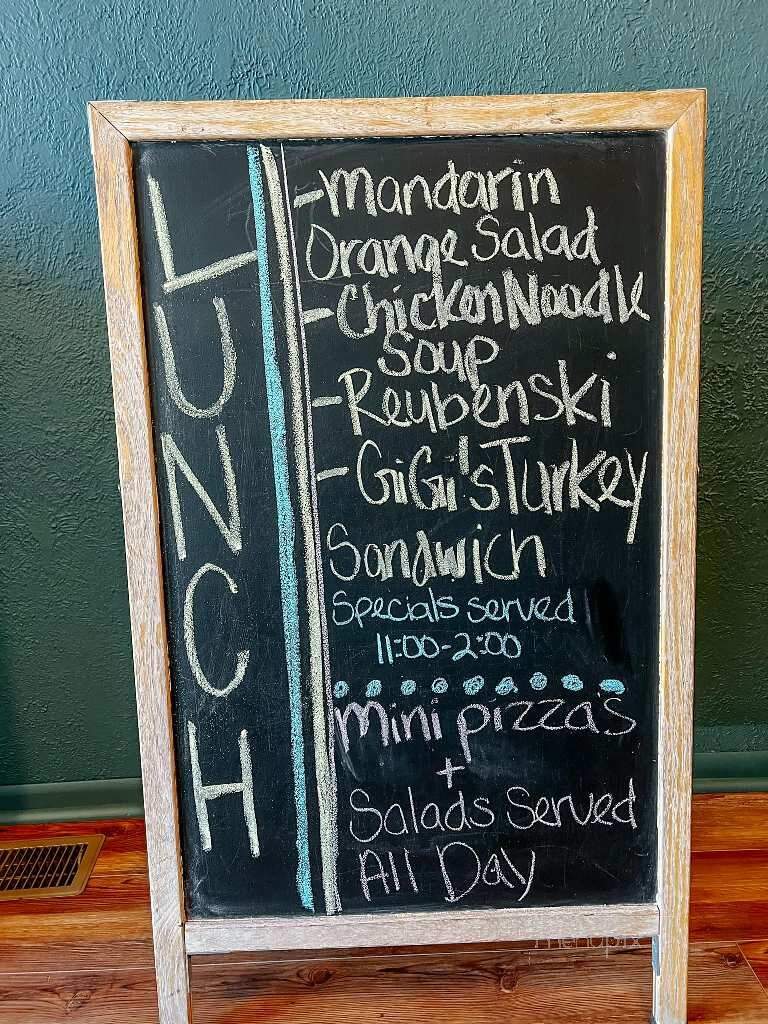 LUNCH
-Mandarin
Orange Salad
-Chicken Noodle
Soup
-Reubenski
-GiGi's Turkey
Sandwich
Specials served
11:00-2:00
mini pizza's
+
Salads Served
All Day
menupix